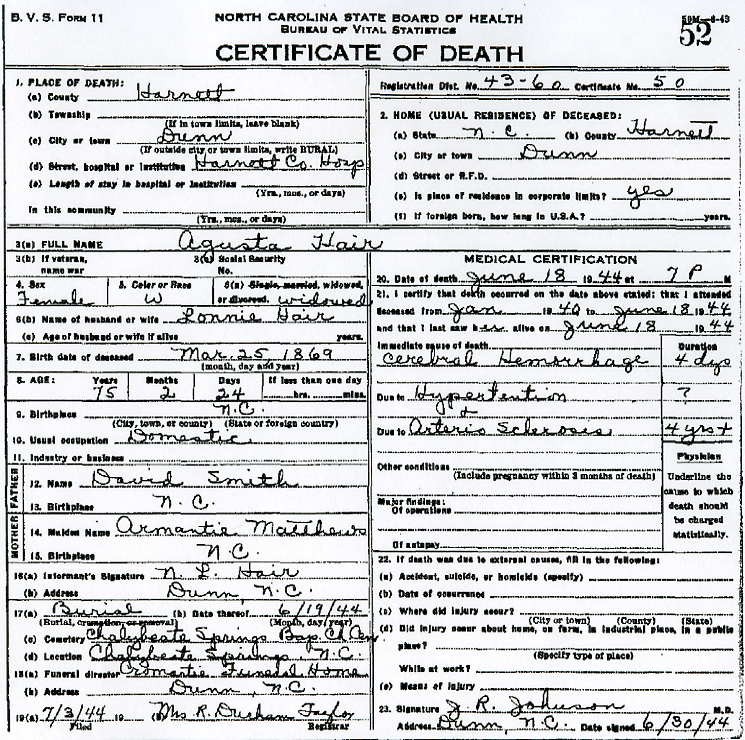 B. V. S. FORM 11
NORTH CAROLINA STATE BOARD OF HEALTH
BUREAU OF VITAL STATISTICS
50M-6-43
52
CERTIFICATE OF DEATH
Registration Dist. No. 43-60 Certificate No. 50
1. PLACE OF DEATH:
(a) County Harnett
(b) Township
(If in town limits, leave blank)
(c) City or town Dunn
(If outside city or town limits, write RURAL)
(d) Street, hospital or institution Harnett Co. Hosp
(e) Length of stay in hospital or institution
(Yrs., mos., or days)
In this community
(Yrs., mos., or days)
2. HOME (USUAL RESIDENCE) OF DECEASED:
(a) State N. C. (b) County Harnett
(c) City or town Dunn
(d) Street or R.F.D.
(e) Is place of residence in corporate limits? yes
(f) If foreign born, how long in U.S.A.? years.
3(a) FULL NAME Agusta Hair
3(b) If veteran, name war
3(c) Social Security No.
4. Sex Female
5. Color or Race W
6(a) Single, married, widowed, or divorced. widowed
6(b) Name of husband or wife Lonnie Hair
(c) Age of husband or wife if alive years.
7. Birth date of deceased Mar. 25, 1869
(month, day and year)
8. AGE: Years Months Days If less than one day
75 2 24 hrs. mins.
9. Birthplace N.C.
(City, town, or county) (State or foreign country)
10. Usual occupation Domestic
11. Industry or business
FATHER
12. Name David Smith
13. Birthplace N. C.
MOTHER
14. Maiden Name Armantie Matthews
15. Birthplace N.C.
16(a) Informant's Signature N. L. Hair
(b) Address Dunn, N.C.
17(a) Burial (b) Date thereof 6/19/44
(Burial, cremation, or removal) (Month, day, year)
(c) Cemetery Chalybeate Springs Bap. Ch. Cem
(d) Location Chalybeate Springs, N.C.
18(a) Funeral director Cromartie Funeral Home
(b) Address Dunn, N.C.
19(a) 7/3/44 19 (b) Mrs R. Durham Taylor
Filed Registrar
MEDICAL CERTIFICATION
20. Date of death June 18 1944 at 7 P M
21. I certify that death occurred on the date above stated; that I attended
deceased from Jan 1940 to June 18 1944
and that I last saw her alive on June 18 1944
Immediate cause of death Duration
Cerebral Hemorrhage 4 dys
Due to Hypertention ?
&
Due to Arterio Sclerosis 4 yrs+
Other conditions
(Include pregnancy within 3 months of death)
Major findings:
Of operations
Of autopsy
Physician
Underline the
cause to which
death should
be charged
statistically.
22. If death was due to external causes, fill in the following:
(a) Accident, suicide, or homicide (specify)
(b) Date of occurrence
(c) Where did injury occur?
(City or town) (County) (State)
(d) Did injury occur about home, on farm, in industrial place, in a public
place?
(Specify type of place)
While at work?
(e) Means of injury
23. Signature J. R. Johnson M.D.
Address Dunn, N.C. Date signed 6/30/44